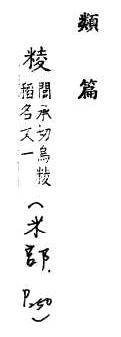 類篇
閭承切烏
稻名文一
(米部. P.250)